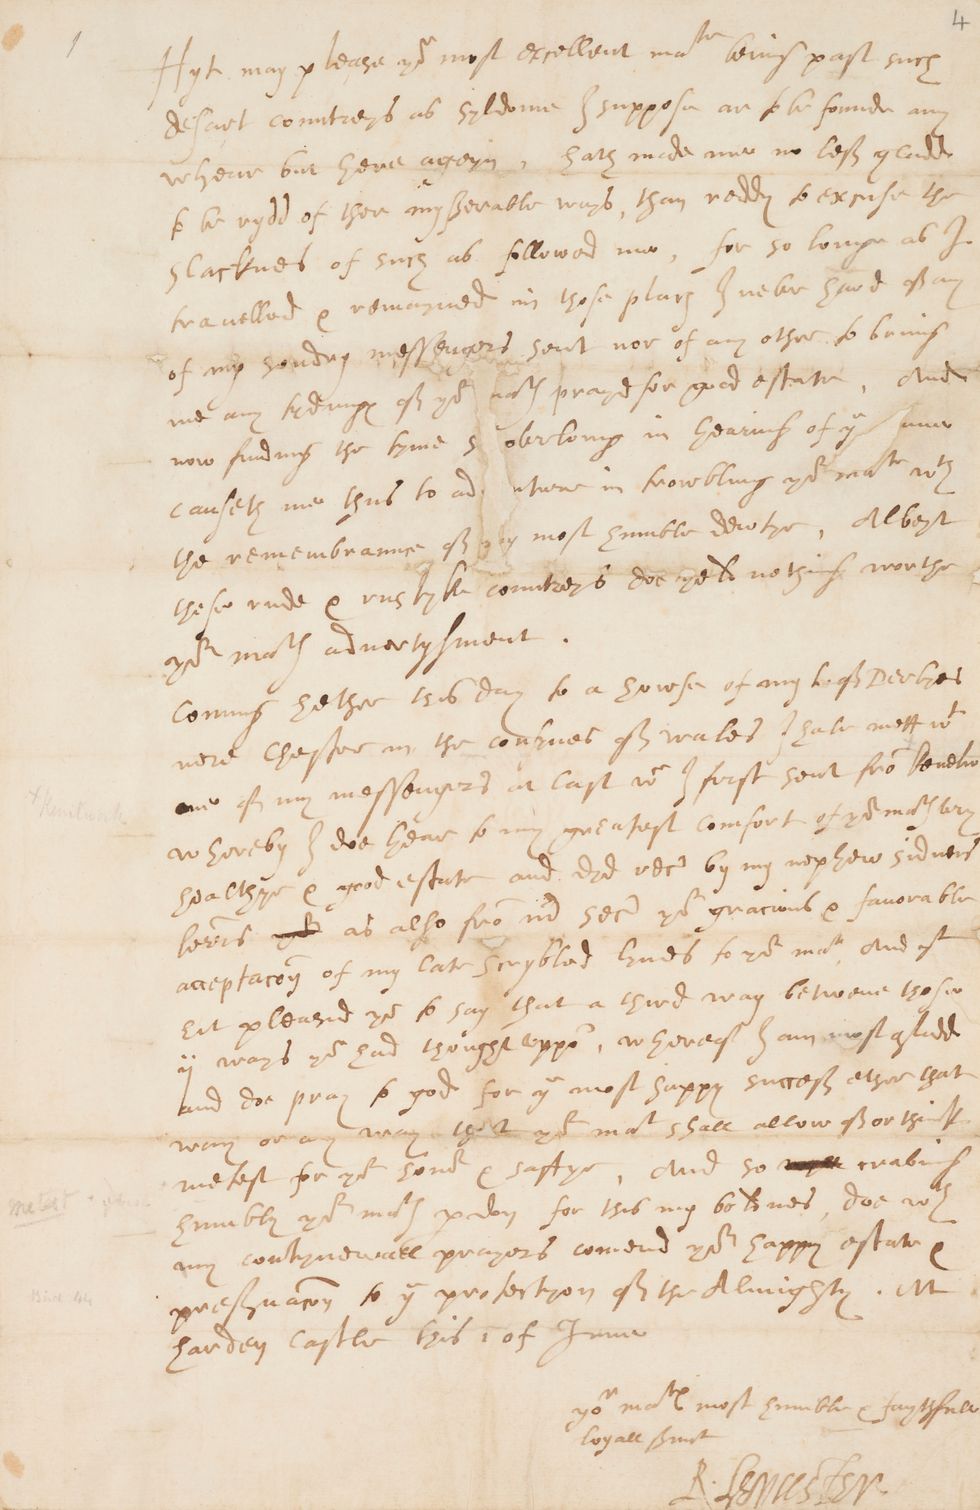 4
1
Hyt may please yor most excellent matie being past such
desart countreys as syldome I suppose ar to be founde any
whear but here ageyn, hath made me no less gladd
to be rydd of thos mysserable ways, than reddy to excuse the
slacknes of such as followed me, for so longe as I
travelled & remayned in those places I never hard of any
of my sondry messengers sent nor of any other to bring
me any tydings of yor prayd for good estate, And
now finding the tyme over long in hearing of ye same
causeth me thus to in trowbling yor matie wth
the remembraunce of my most humble dewtye, Albeyt
these rude & ruslyke countreys doe yeld nothing worthe
yor maties advertysment.
Coming hether this day to a howse of my L of Derbyes
nere Chester in the confynes of wales I have mett wt
one of my messengers at last wch I first sent fro Kenelw
+ Kenilworth
whereby I doe hear to my greatest comfort of yor maties very
healthye & good estate and dyd rece by my nephew Sidneis
letters as also fro mr secr yor gracious & favorable
acceptacon of my late scrybled lynes to yor matie, And yt
hit pleased you to say that a third way betwene those
ij ways you had thought uppo, whereof I am most gladd
and doe pray to god for ye most happy success ether that
way or any way that yor matie shall allow of or think
metest for yor honor & saftye, And so craving
metest
humbly yor maties pdon for this my boldnes, doe wth
my contynewall prayers comend yor happy estate &
preservacon to ye protectyon of the Almighty. At
harden Castle this 1 of June
yor maties most humble & faythfull
loyall srvnt
R. Leycester